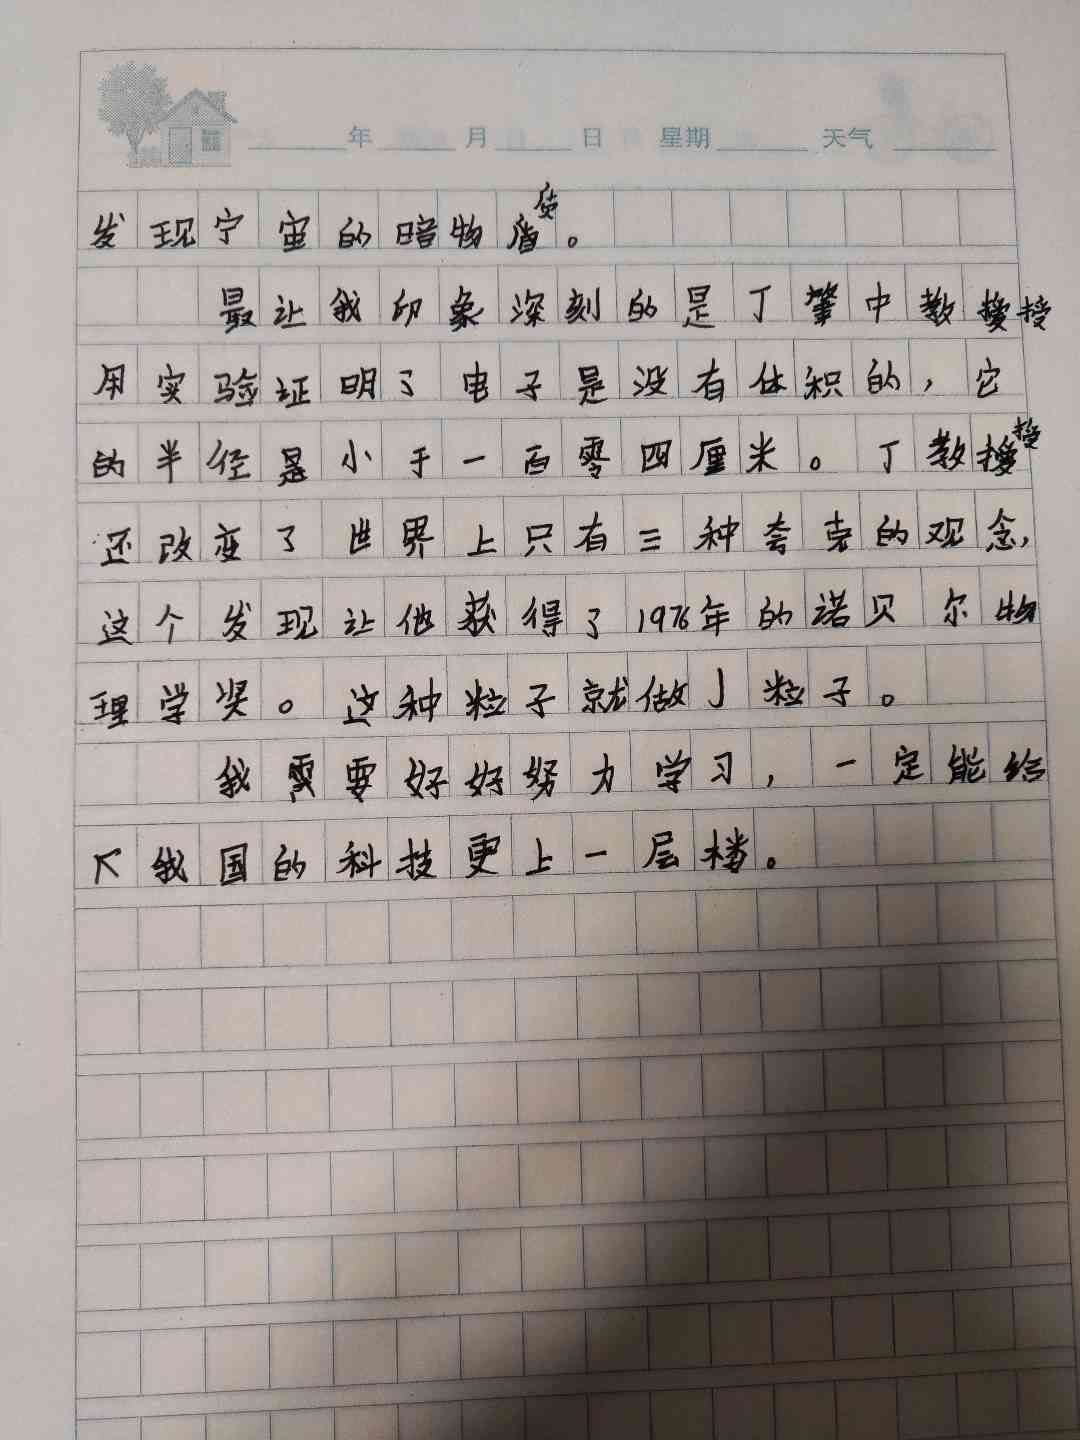 年 月 日 星期 天气
发现宁宙的暗物盾质。
最让我印象深刻的是丁肇中教授授
用实验证明了电子是没有体积的，它
的半径是小于一百零四厘米。丁教授授
还改变了世界上只有三种夸克的观念，
这个发现让他获得了1976年的诺贝尔物
理学奖。这种粒子就做J粒子。
我需要好好努力学习，一定能给
我国的科技更上一层楼。